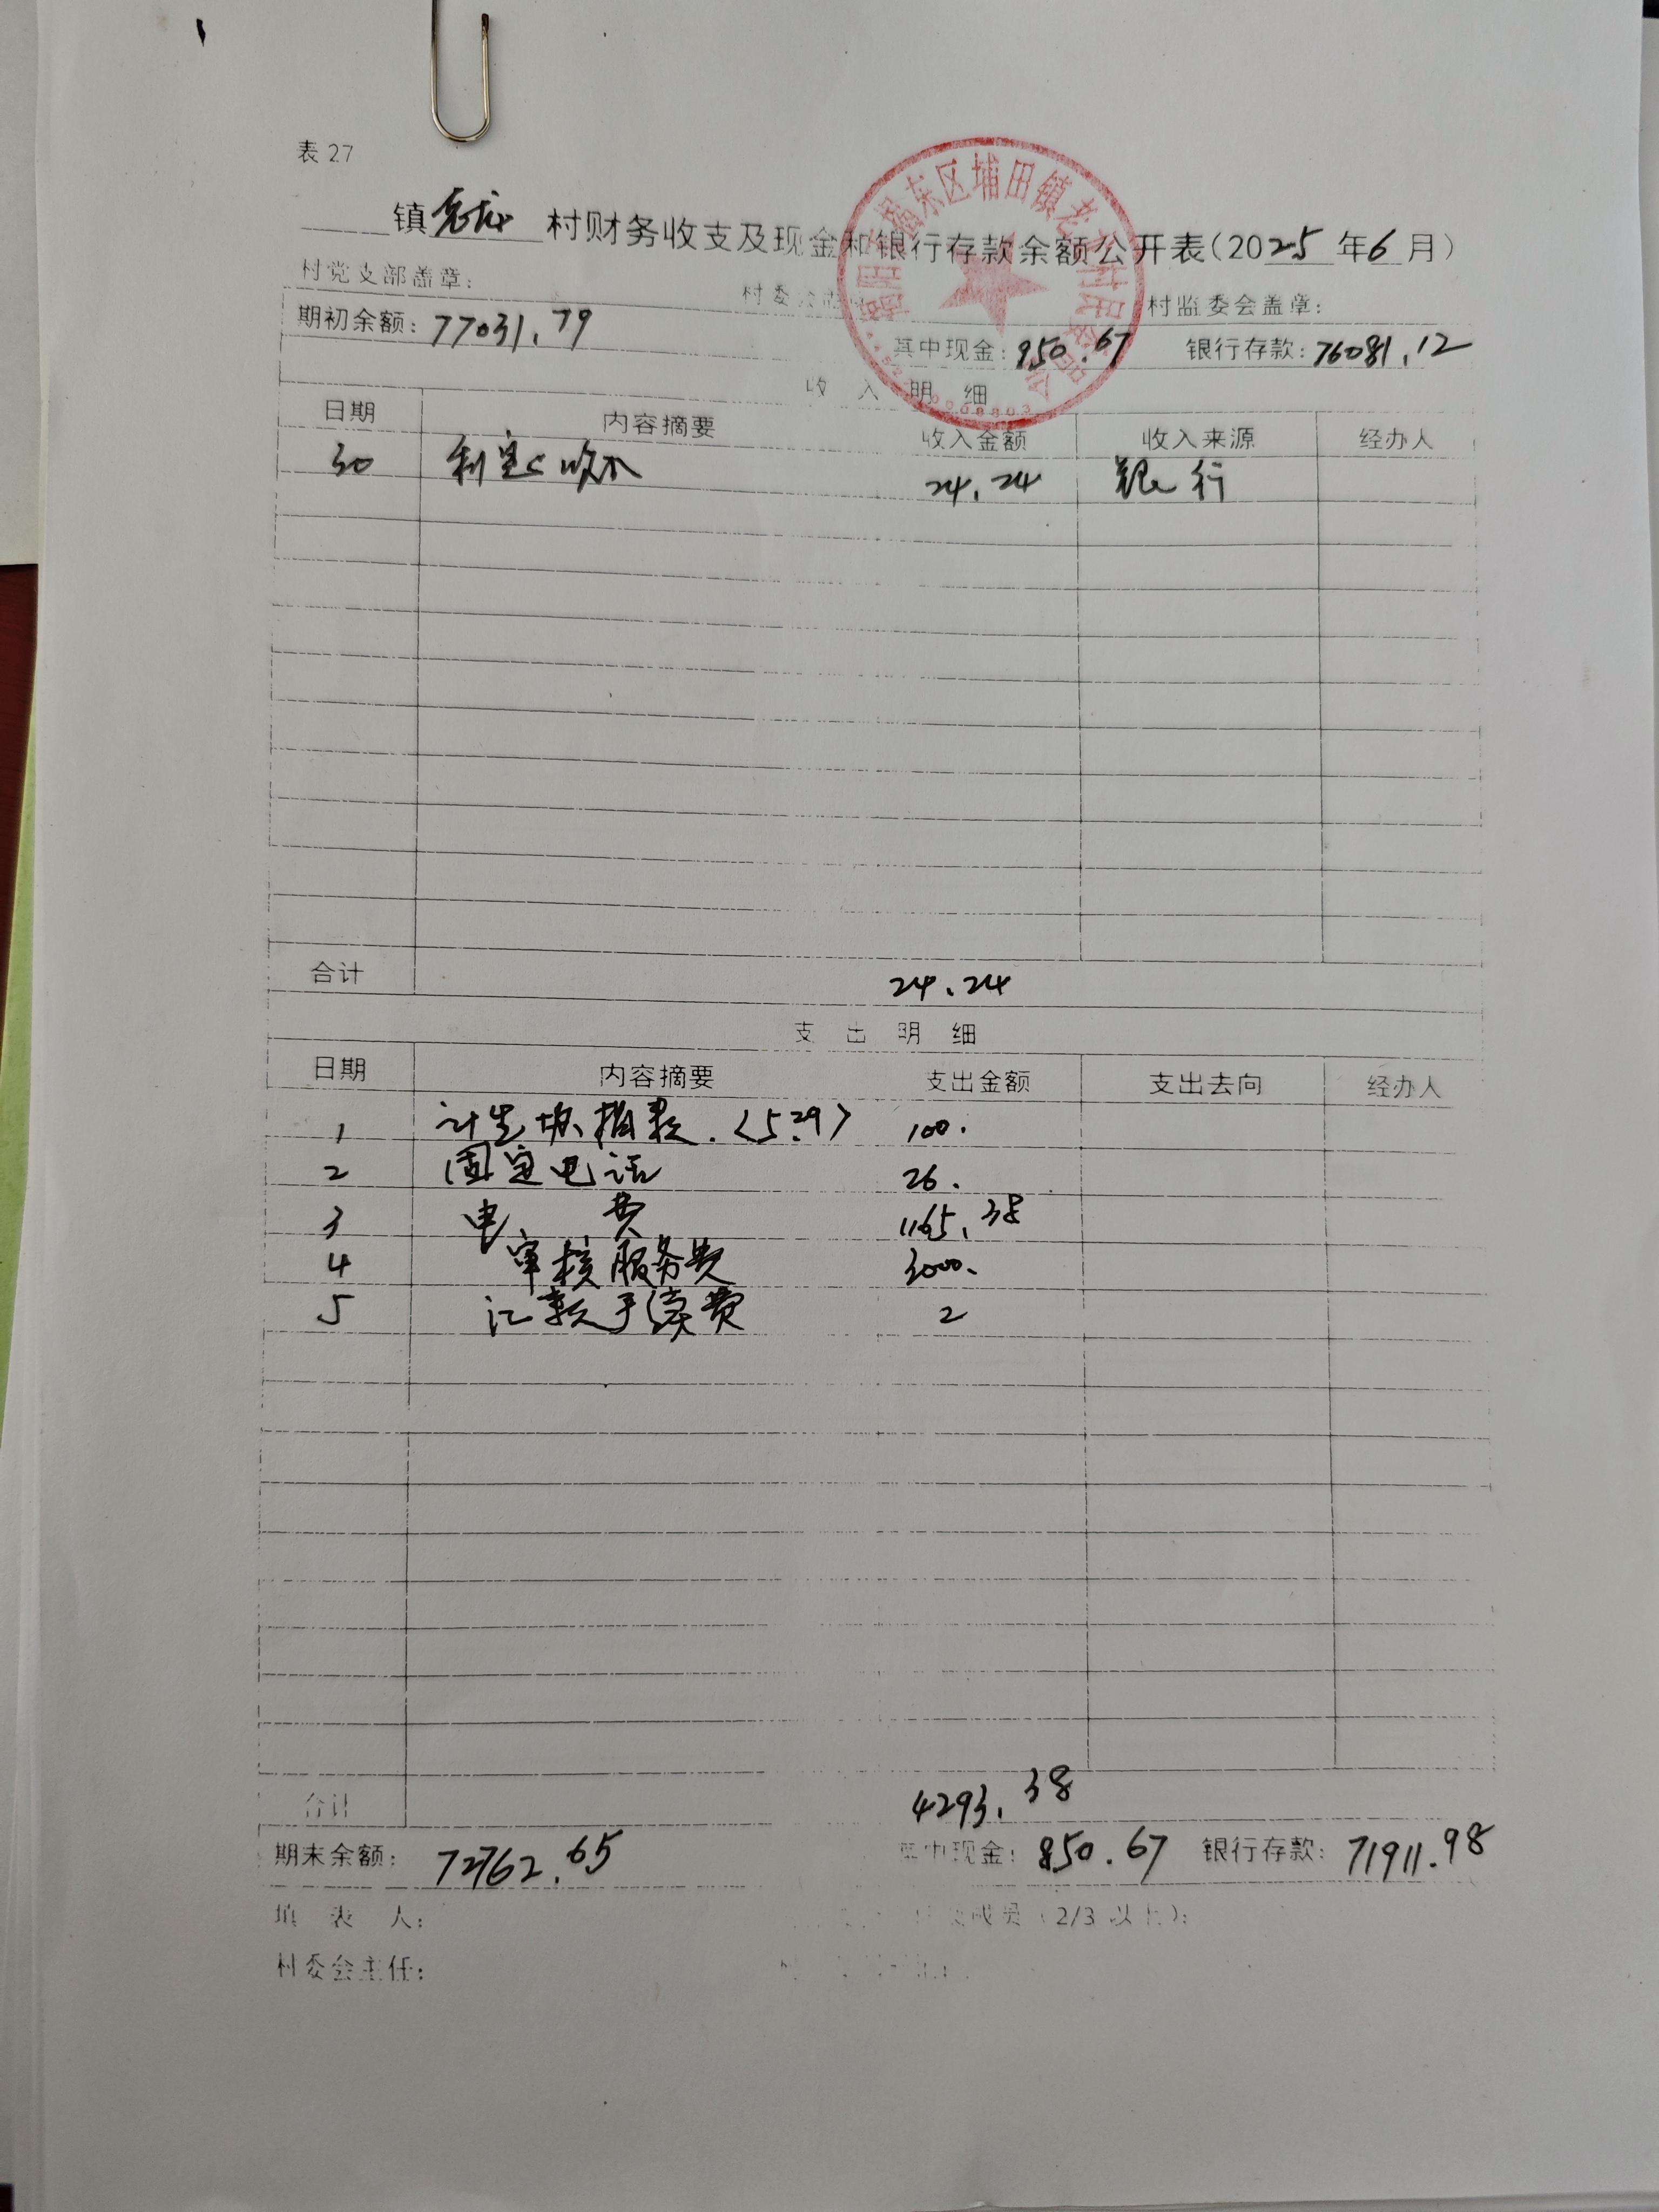 表 27
镇老龙村财务收支及现金和银行存款余额公开表(2025年6月)
村党支部盖章: 村委会盖章 村监委会盖章:
揭东区埔田镇老龙村民委员会
期初余额: 77031.79 其中现金: 950.67 银行存款: 76081.12
收入明细
日期 内容摘要 收入金额 收入来源 经办人
30 利息收入 24.24 银行
合计 24.24
支出明细
日期 内容摘要 支出金额 支出去向 经办人
1 计生协捐款.<5.29> 100.
2 固定电话 26.
3 电费 1165.38
4 审核服务费 3000.
5 汇款手续费 2
合计 4293.38
期末余额: 72762.65 其中现金: 850.67 银行存款: 71911.98
填表人: 成员(2/3以上):
村委会主任: